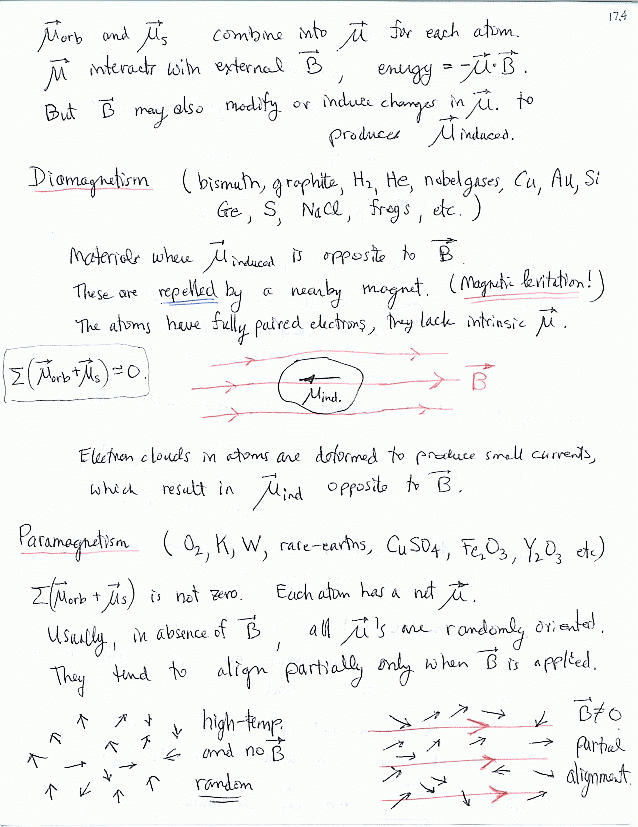 17.4
μ⃗orb and μ⃗s combine into μ⃗ for each atom.
μ⃗ interacts with external B⃗, energy = -μ⃗·B⃗.
But B⃗ may also modify or induce changes in μ⃗. to
produces μ⃗induced.
Diamagnetism (bismuth, graphite, H₂, He, nobel gases, Cu, Au, Si
Ge, S, NaCl, frogs, etc.)
Materials where μ⃗induced is opposite to B⃗
These are repelled by a nearby magnet. (Magnetic levitation!)
The atoms have fully paired electrons, they lack intrinsic μ⃗.
Σ(μ⃗orb+μ⃗s)=0.
B⃗
μind.
Electron clouds in atoms are deformed to produce small currents,
which result in μ⃗ind opposite to B⃗.
Paramagnetism (O₂, K, W, rare-earths, CuSO₄, Fe₂O₃, Y₂O₃ etc)
Σ(μ⃗orb + μ⃗s) is not zero. Each atom has a net μ⃗.
Usually, in absence of B⃗, all μ⃗'s are randomly oriented.
They tend to align partially only when B⃗ is applied.
high-temp.
and no B⃗
random
B⃗≠0
partial
alignment.